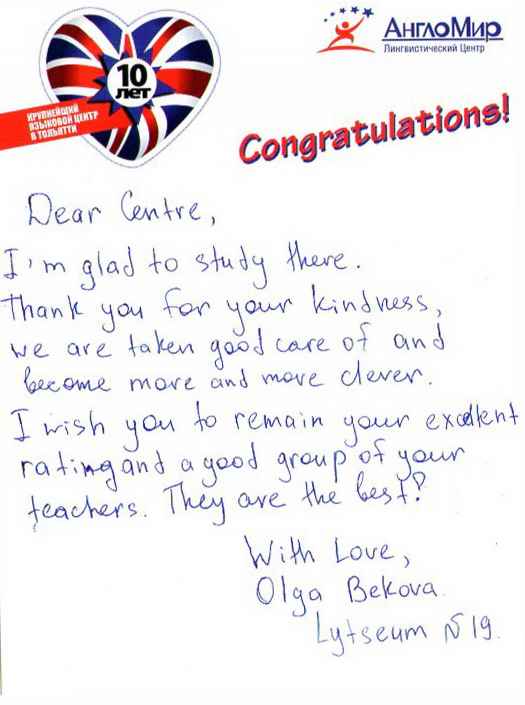 10
ЛЕТ
КРУПНЕЙШИЙ
ЯЗЫКОВОЙ ЦЕНТР
В ТОЛЬЯТТИ
АнглоМир
Лингвистический Центр
Congratulations!
Dear Centre,
I'm glad to study there.
Thank you for your kindness,
we are taken good care of and
become more and more clever.
I wish you to remain your excellent
rating and a good group of your
teachers. They are the best!
With Love,
Olga Bekova.
Lytseum №19.